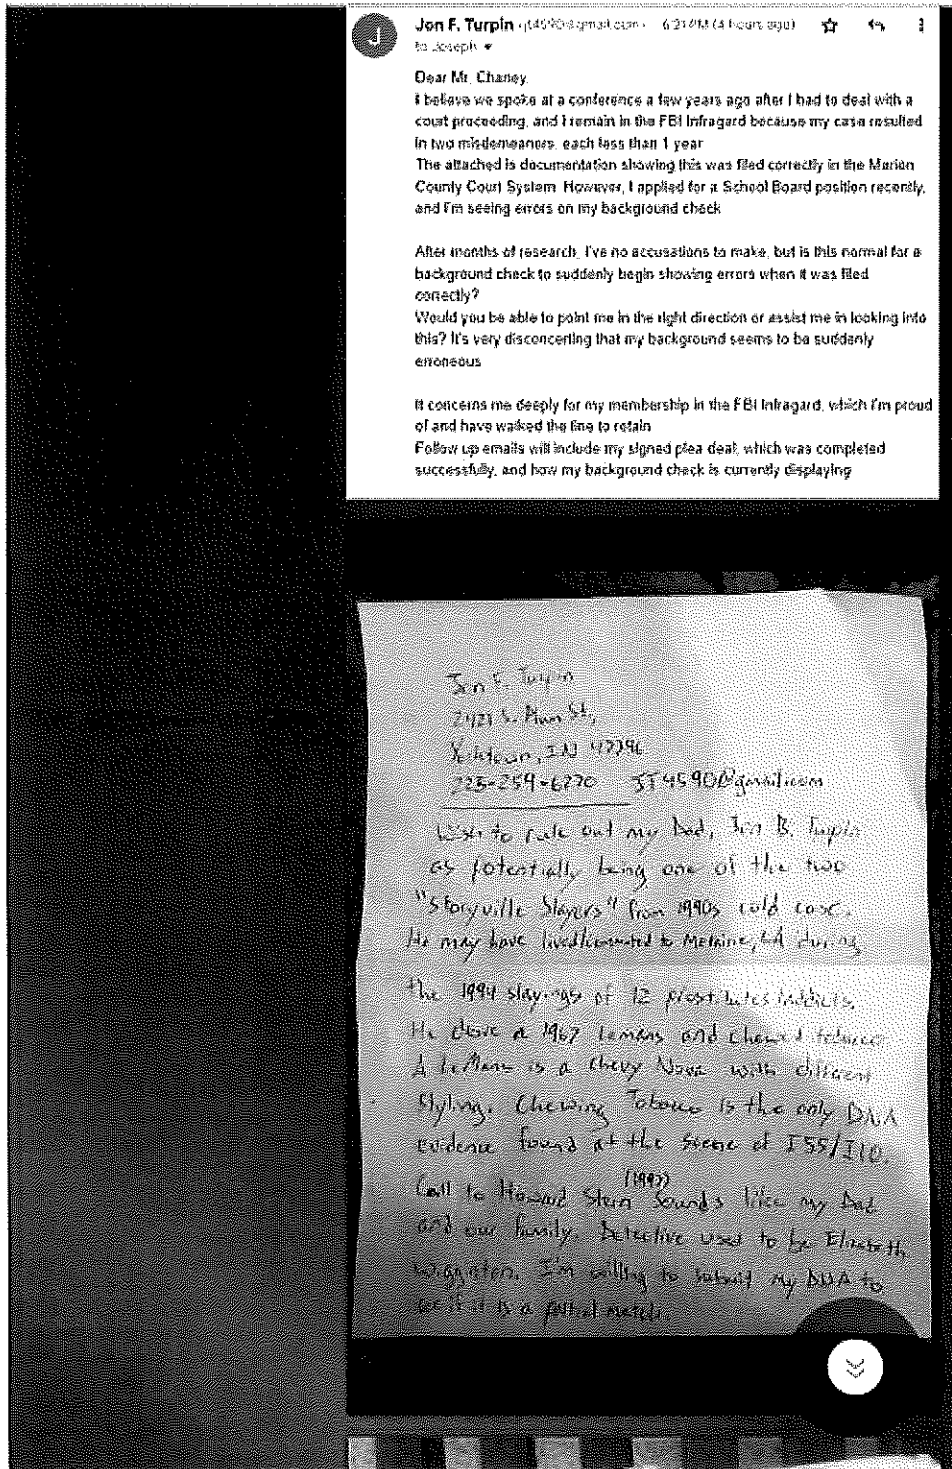 J
Jon F. Turpin 6:21 PM (4 hours ago)
to Joseph
Dear Mr. Chaney,
I believe we spoke at a conference a few years ago after I had to deal with a
court proceeding, and I remain in the FBI Infragard because my case resulted
in two misdemeanors, each less than 1 year
The attached is documentation showing this was filed correctly in the Marion
County Court System. However, I applied for a School Board position recently,
and I'm seeing errors on my background check
After months of research, I've no accusations to make, but is this normal for a
background check to suddenly begin showing errors when it was filed
correctly?
Would you be able to point me in the right direction or assist me in looking into
this? It's very disconcerting that my background seems to be suddenly
erroneous
It concerns me deeply for my membership in the FBI Infragard, which I'm proud
of and have walked the line to retain
Follow up emails will include my signed plea deal, which was completed
successfully, and how my background check is currently displaying
Jon F. Turpin
St,
IN
JT4590@gmail.com
to rule out my Dad, Jon B. Turpin
as potentially being one of the two
"Storyville Slayers" from 1990s cold case.
He may have to LA during
the 1994 slayings of 12
He drove a 1967 Lemans and chewed tobacco
A LeMans is a Chevy Nova with different
Styling. Chewing Tobacco is the only DNA
evidence found at the scene of I55/I10.
(1997)
Call to Howard Stern Sounds like my Dad
and our family. Detective used to be Elizabeth
I'm willing to submit my DNA to
see if it is a partial match.